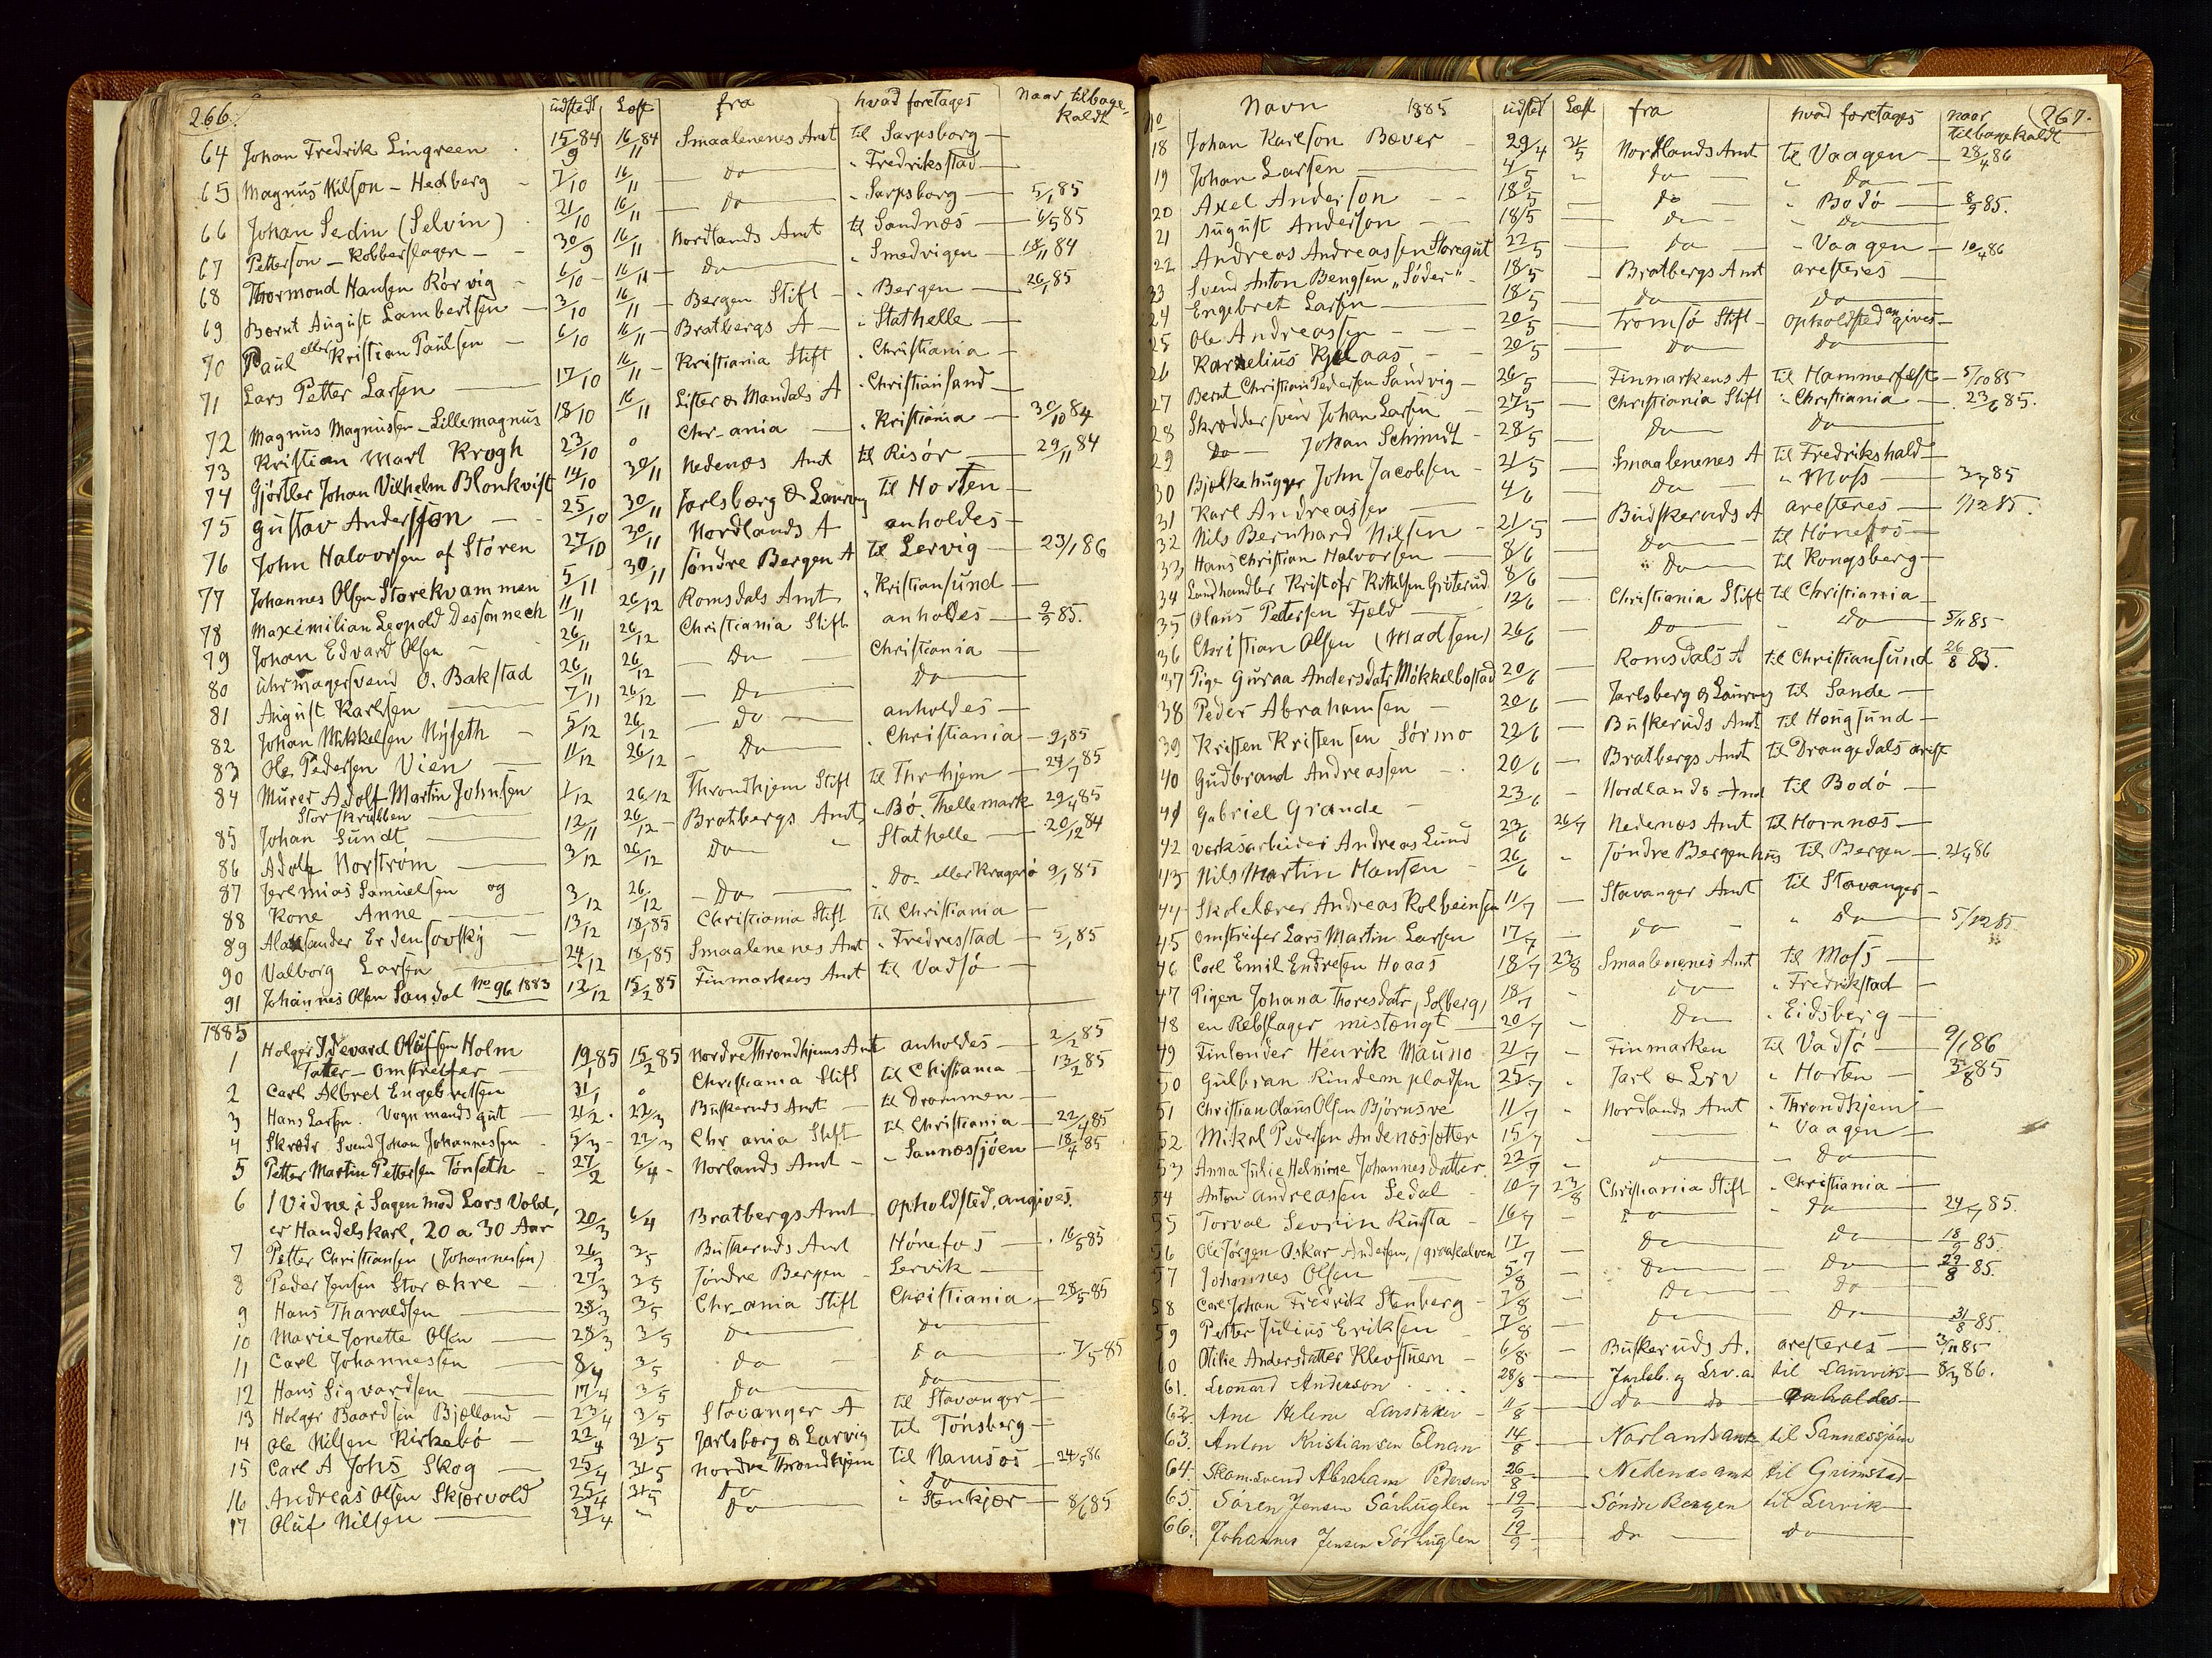 266. udstedt Læst fra hvad foretages Naar tilbage-
kaldt
64 Johan Fredrik Lingreen 15/9 84 16/11 84 Smaalenenes Amt til Sarpsborg
65 Magnus Nilson - Hedberg 7/10 16/11 Do " Fredriksstad
66 Johan Sedin (Selvin) 21/10 16/11 Do " Sarpsborg 5/1 85
67 Petterson - Kobberslager 30/9 16/11 Nordlands Amt til Sandnæs 6/5 85
68 Thormond Hansen Rörvig 6/10 16/11 Do " Smedvigen 18/11 84
69 Bernt August Lambertsen 3/10 16/11 Bergen Stift " Bergen 26/1 85
70 Paul eller Kristian Paulsen 6/10 16/11 Bratbergs A " Stathelle
71 Lars Petter Larsen 17/10 16/11 Kristiania Stift " Christiania
72 Magnus Magnussen - Lillemagnus 18/10 16/11 Lister & Mandals A " Christiansand
73 Kristian Marl Krogh 23/10 o Chr-ania " Kristiania 30/10 84
74 Gjörtler Johan Vilhelm Blonkvist 14/10 30/11 Nedenæs Amt til Risör 29/11 84
75 Gustav Andersson 25/10 30/11 Jarlsberg & Laurvig til Horten
76 John Halvorsen af Stören 27/10 30/11 Nordlands A anholdes
77 Johannes Olsen Storekvammen 5/11 30/11 Söndre Bergen A til Lervig 23/1 86
78 Maximilian Leopold Dessonnech 11/11 26/12 Romsdals Amt " Kristiansund
79 Johan Edvard Olsen 26/11 26/12 Christiania Stift anholdes 2/3 85.
80 Uhrmagersvend O. Bakstad 26/11 26/12 Do Christiania
81 August Karlsen 7/11 26/12 Do Do
82 Johan Mikkelsen Nÿseth 5/12 26/12 Do anholdes
83 Ole Pedersen Vien 11/12 26/12 Do " Christiania 9/1 85
84 Murer Adolf Martin Johnsen 1/12 26/12 Throndhjem Stift til Thr-hjem 24/7 85
Storskrubben
85 Johan Sundt 12/11 26/12 Bratbergs Amt " Bö. Thellemark 29/4 85
86 Adolf Norström 3/12 26/12 Do " Stathelle 20/12 84
87 Jeremias Samuelsen og
88 Kone Anne 3/12 26/12 Do " Do. eller Kragerö 9/1 85
89 Alexsander Erdensovskÿ 13/12 18/1 85 Christiania Stift til Christiania
90 Valborg Larsen 24/12 18/1 85 Smaalenenes Amt " Fredresstad 5/1 85
91 Johannes Olsen Sandal No 96 1883 12/12 15/2 85 Finmarkens Amt til Vadsö
1885
1 Holger Edevard Olufsen Holm 19/1 85 15/2 85 Nordre Throndhjems Amt anholdes 2/2 85
Tater - Omstreifer
2 Carl Albret Engebretsen 31/1 o Christiania Stift til Christiania 13/2 85
3 Hans Larsen. Vognmandsgut 21/2 22/3 Buskeruds Amt til Drammen
4 Skrædr. Svend Johan Johannesen 5/3 22/3 Chr ania Stift til Christiania 22/4 85
5 Petter Martin Pettersen Tønseth 27/2 6/4 Norlands Amt " Sannæssjöen 18/4 85
6 1 Vidne i Sagen mod Lars Vold,
er Handelskarl, 20 a 30 Aar 20/3 6/4 Bratbergs Amt opholdsted, angives.
7 Petter Christiansen (Johannesen) 26/3 3/5 Buskeruds Amt Hönefos 16/5 85
8 Peder Jensen Storækre 27/3 3/5 Söndre Bergen Lervik
9 Hans Tharaldsen 28/3 3/5 Chr-ania Stift Christiania 28/5 85
10 Marie Jonette Olsen 28/3 3/5 Do Do
11 Carl Johannessen 8/4 3/5 Do Do 7/5 85
12 Hans Sigvardsen 17/4 3/5 Do Do
13 Holger Baardsen Bjelland 23/4 3/5 Stavanger A til Stavanger
14 Ole Nilsen Kirkebö 22/4 31/5 Jarlsberg & Larvig til Tönsberg
15 Carl A Johs Skog 25/4 31/5 Nordre Throndhjem til Namsos 24/5 86
16 Andreas Olsen Skjervold 25/4 31/5 Do Do
17 Oluf Nilsen 29/4 " Do " Stenkjær 8/6 85
No Navn 1885 udstedt Læst fra hvad foretages naar
tilbagekaldt 267.
18 Johan Karlson Bæver 29/4 31/5 Nordlands Amt til Vaagen 28/4 86
19 Johan Larsen 4/5 " Do " Do
20 Axel Anderson 18/5 Do " Bodö 8/9 85.
21 August Anderson 18/5 Do " Do
22 Andreas Andreassen Storegut 22/5 Do " Vaagen 10/4 86
23 Svend Anton Bengsen "Söder" 18/5 Bratbergs Amt aresteres
24 Engebret Larsen 18/5 Do Do
25 Ole Andreassen 20/5 Tromsö Stift opholdsted angives
26 Karnelius Kjelaas 20/5 Do Do
27 Bernt Christian Pedersen Sandvig 26/5 Finmarkens A til Hammerfest 5/10 85
28 Skræddersvend Johan Larsen 27/5 Christiania Stift " Christiania 23/6 85.
29 Do Johan Schimdt 28/5 Do Do
30 Bjelkehugger John Jacobsen 21/5 Smaalenenes A til Fredrikshald
31 Karl Andreassen 4/6 Do " Moss 3/7 85
32 Nils Bernhard Nilsen 21/5 Budskeruds A aresteres 1/12 85.
33 Hans Christian Halvorsen 8/6 Do til Hönefos
34 Landhandler Kristofr Kittelsen Gröterud 8/6 " Do til Kongsberg
35 Olaus Petersen Fjeld 12/6 Christiania Stift til Christiania
36 Christian Olsen (Madsen) 26/6 Do " Do 5/11 85
37 Pige Guraa Andersdatr Mökkelbostad 20/6 Romsdals A til Christiansund 26/8 85.
38 Peder Abrahamsen 20/6 Jarlsberg & Laurvig til Sande
39 Kristen Kristensen Sörmo 22/6 Buskeruds Amt til Hougsund
40 Gudbrand Andreassen 20/6 Bratbergs Amt til Drangedals arest
41 Gabriel Grande 23/6 Nordlands Amt til Bodö
42 Værksarbeider Andreas Lund 23/6 26/7 Nedenæs Amt til Hornnæs
43 Nils Martin Hansen 26/6 " Söndre Bergenhus til Bergen 21/4 86
44 Skolelærer Andreas Kolbeinsen 11/7 Stavanger Amt til Stavanger
45 Omstreifer Lars Martin Larsen 17/7 Do " Do 5/12 85
46 Carl Emil Endresen Hoaas 18/7 23/8 Smaalenenes Amt til Moss
47 Pigen Johana Thoresdatr (Solberg) 18/7 " Do " Fredrikstad
48 en Rebslager mistængt 20/7 " Do " Eidsberg
49 Finlænder Henrik Mauno 21/7 " Finmarken til Vadsö 9/1 86
50 Gulbran Rindempladsen 25/7 " Jarl & Lrv " Horten 3/8 85
51 Christian Olaus Olsen Björnsve 11/7 " Nordlands Amt " Throndhjem
52 Mikal Pedersen Andenæssætter 15/7 " Vaagen
53 Anna Julie Helmine Johannesdatter 22/7 " Do
54 Anton Andreassen Sedal 10/7 23/8 Christiania Stift " Christiania
55 Torval Sevrin Rusta 16/7 " Do " Do 24/7 85.
56 Ole Jörgen Oskar Andersen, graakalven 17/7 Do Do 18/9 85.
57 Johannes Olsen 5/8 Do Do 29/8 85.
58 Carl Johan Fredrik Stenberg 7/8 Do Do
59 Petter Julius Eriksen 7/8 Do Do 31/8 85.
60 Otilie Andersdatter Klevstuen 6/8 Buskeruds A. aresteres 3/11 85
61. Leonard Anderson 28/8 Jarlsb. og Lrv. a. til Laurvik 8/3 86.
62. Ane Helene 11/8 Do Do anholdes
63. Anton Kristiansen Elnan 14/8 Norlands amt til Sannæssjøen
64. Skom.svend Abraham Pedersen 26/8 Nedenæs amt til Grimstad
65. Sören Jensen Sörhuglen 19/9 Söndre Bergen til Lervik
66. Johannes Jensen Sörhuglen 19/9 Do Do